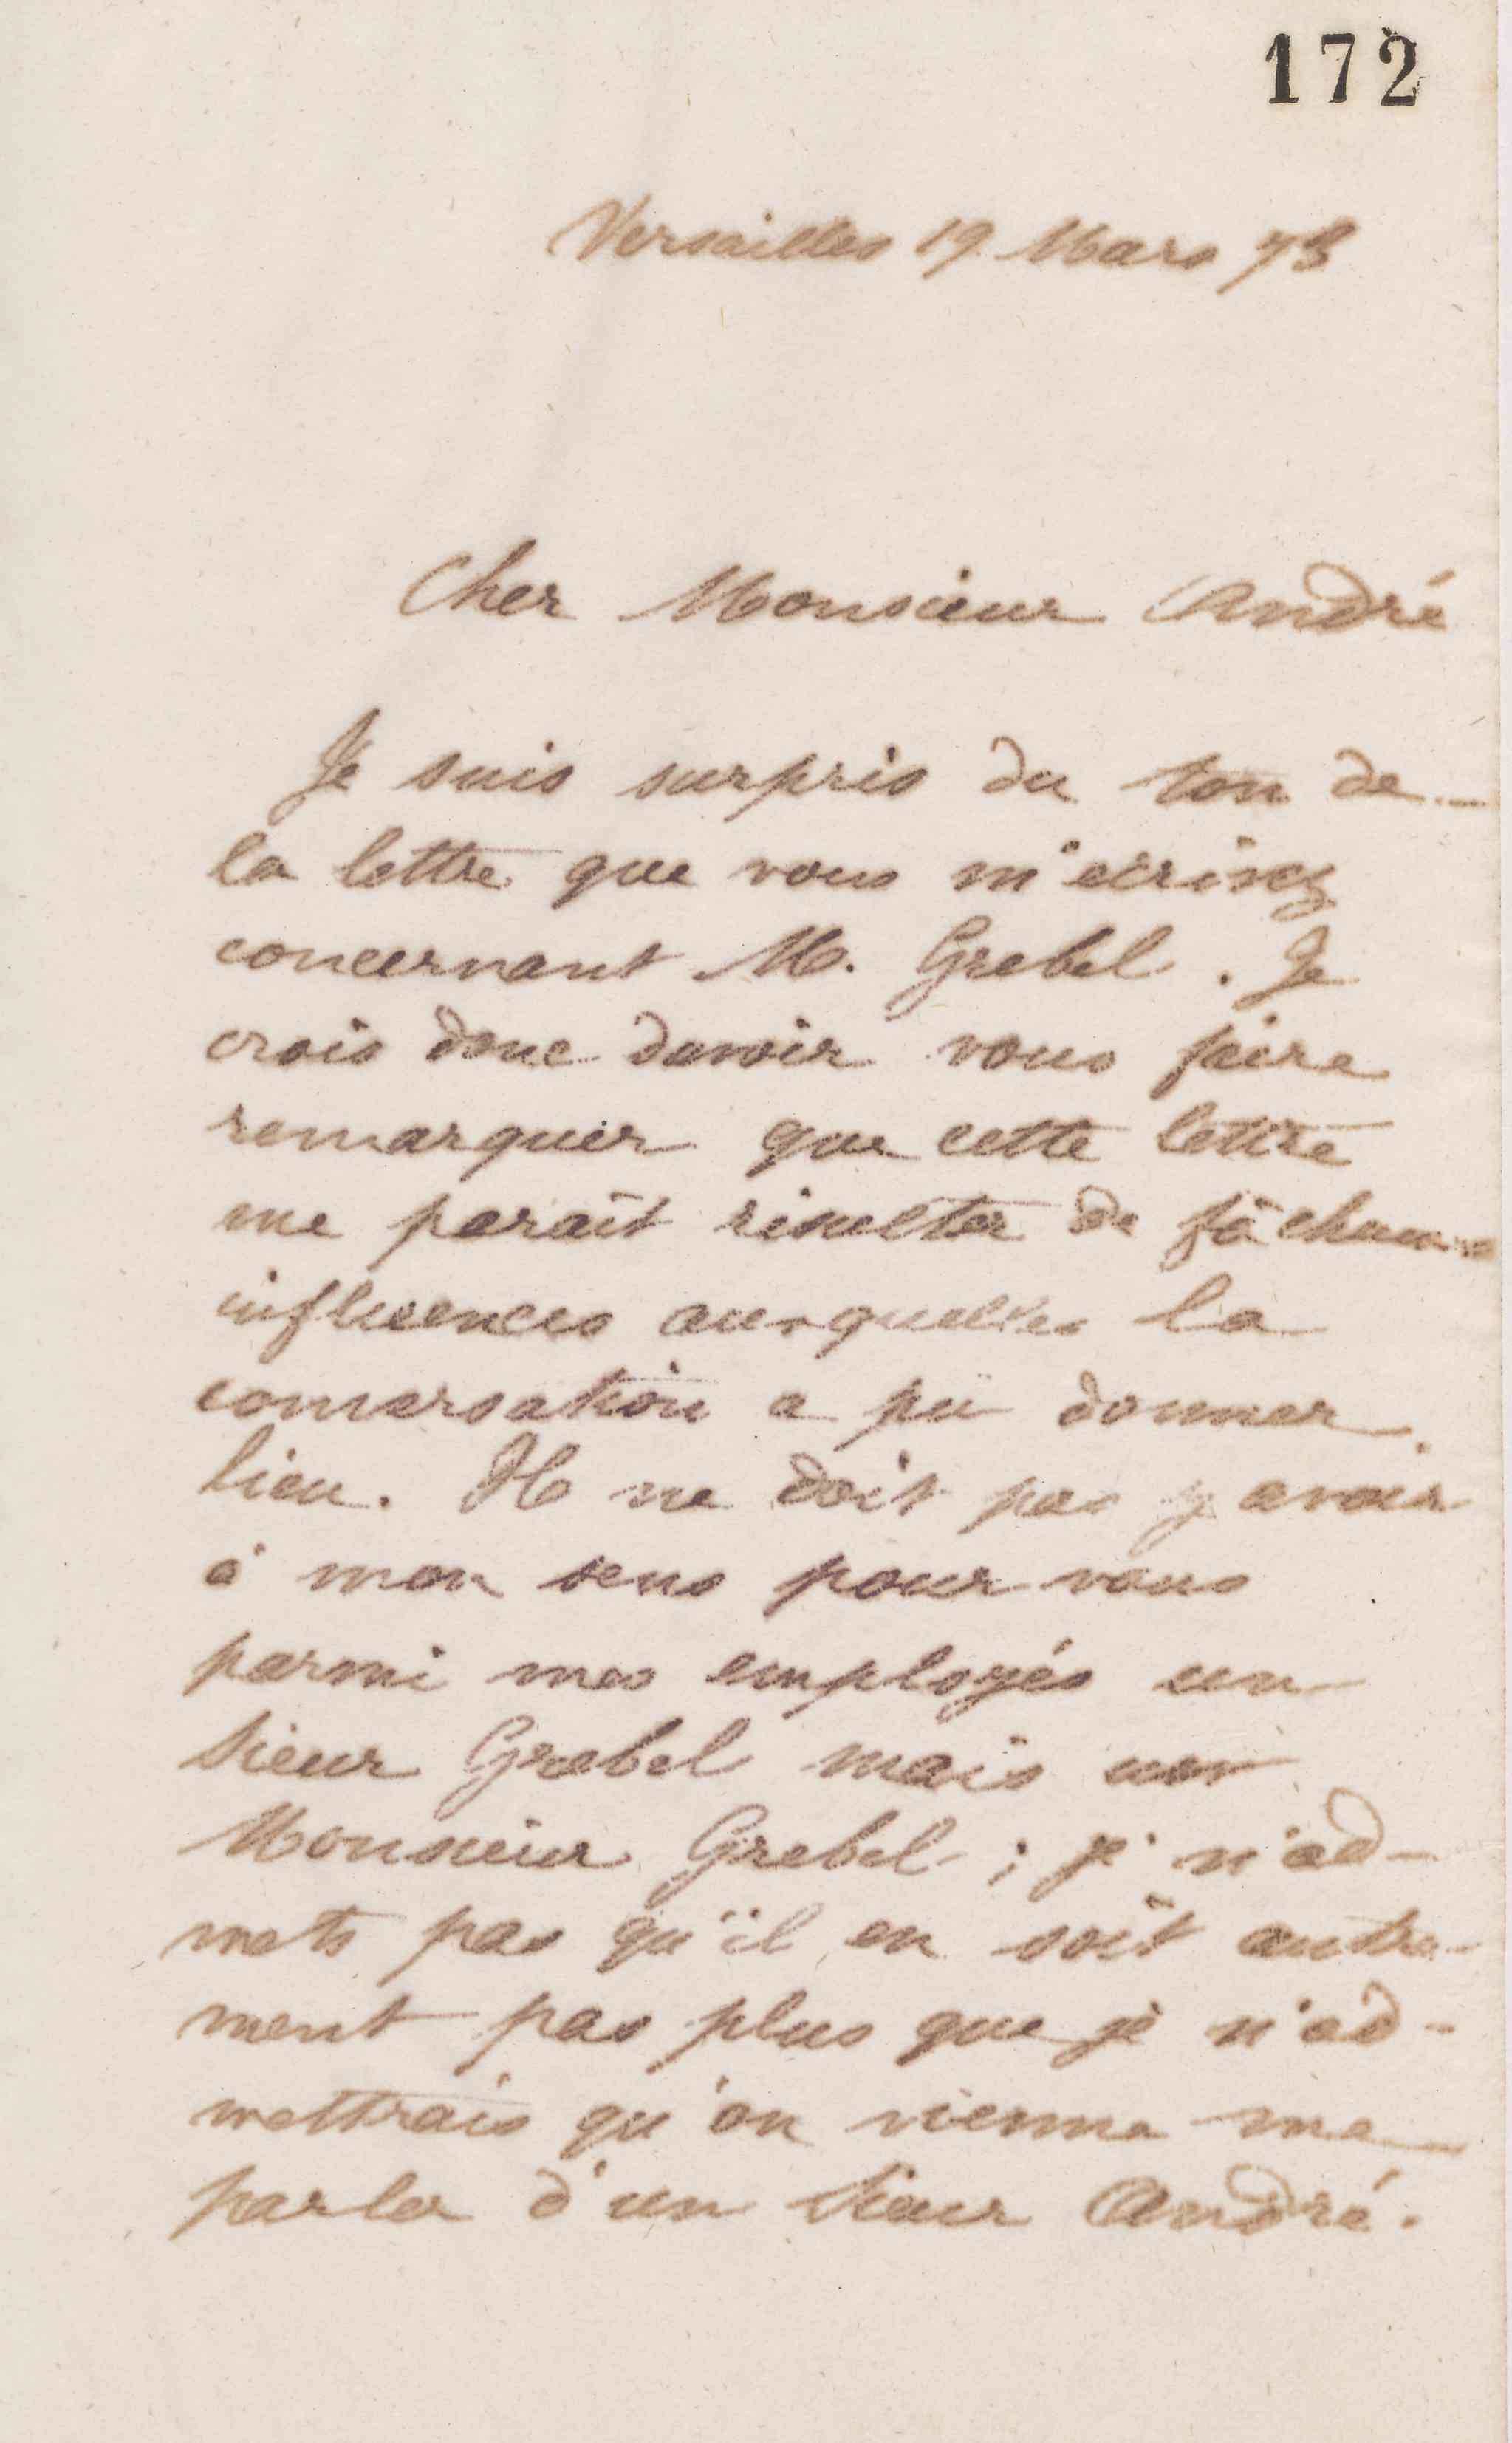 172
Versailles 19 Mars 73
Cher Monsieur André
Je suis surpris du ton de
la lettre que vous m'écrivez
concernant M. Grebel. Je
crois donc devoir vous faire
remarquer que cette lettre
me parait résulter de fâcheuses
influences auxquelles la
conversation a pu donner
lieu. Il ne doit pas y avoir
à mon sens pour vous
parmi mes employés un
sieur Grebel mais un
Monsieur Grebel ; je n'ad-
mets pas qu'il en soit autre-
ment pas plus que je n'ad-
mettrais qu'on vienne me
parler d'un sieur André.